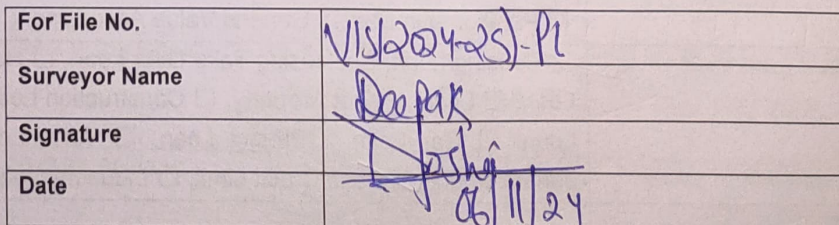 For File No. VIS(2024-25)-PL
Surveyor Name Deepak
Signature Joshi
Date 06/11/24